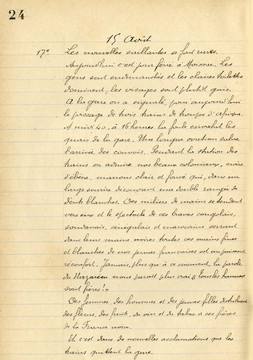 24
15 Avril
17e Les nouvelles vaillantes se font rares.
Aujourd'hui c'est jour foire à Mâcon. Les
gens sont endimanchés et les claires toilettes
dominent, les visages sont plutôt gais.
A la gare on a signalé, pour aujourd'hui
le passage de trois trains de troupes d'Afrique.
A midi 40, à 16 heures la foule envahit les
quais de la gare. Une longue ovation salue
l'arrivée des convois. Pendant la station des
trains on admire nos beaux coloniaux, mais
s'élève, marrons clair et foncé qui, dans un
large sourire découvrent une double rangée de
dents blanches. Des milliers de mains se tendent
vers eux et le spectacle de ces braves congolais,
soudanais, sénégalais et marocains serrant
dans leurs mains noires toutes ces mains fines
et blanches de nos jeunes françaises est un puissant
réconfort. Jamais, plus qu'à ce moment, la parole
du Nazaréen nous paraît plus vraie « Tous les hommes
sont frères ! »
Des femmes des hommes et des jeunes filles distribuent
des fleurs, des fruits, du vin et du tabac à ces frères
de la France noire.
Et c'est dans de nouvelles acclamations que les
trains quittent la gare.